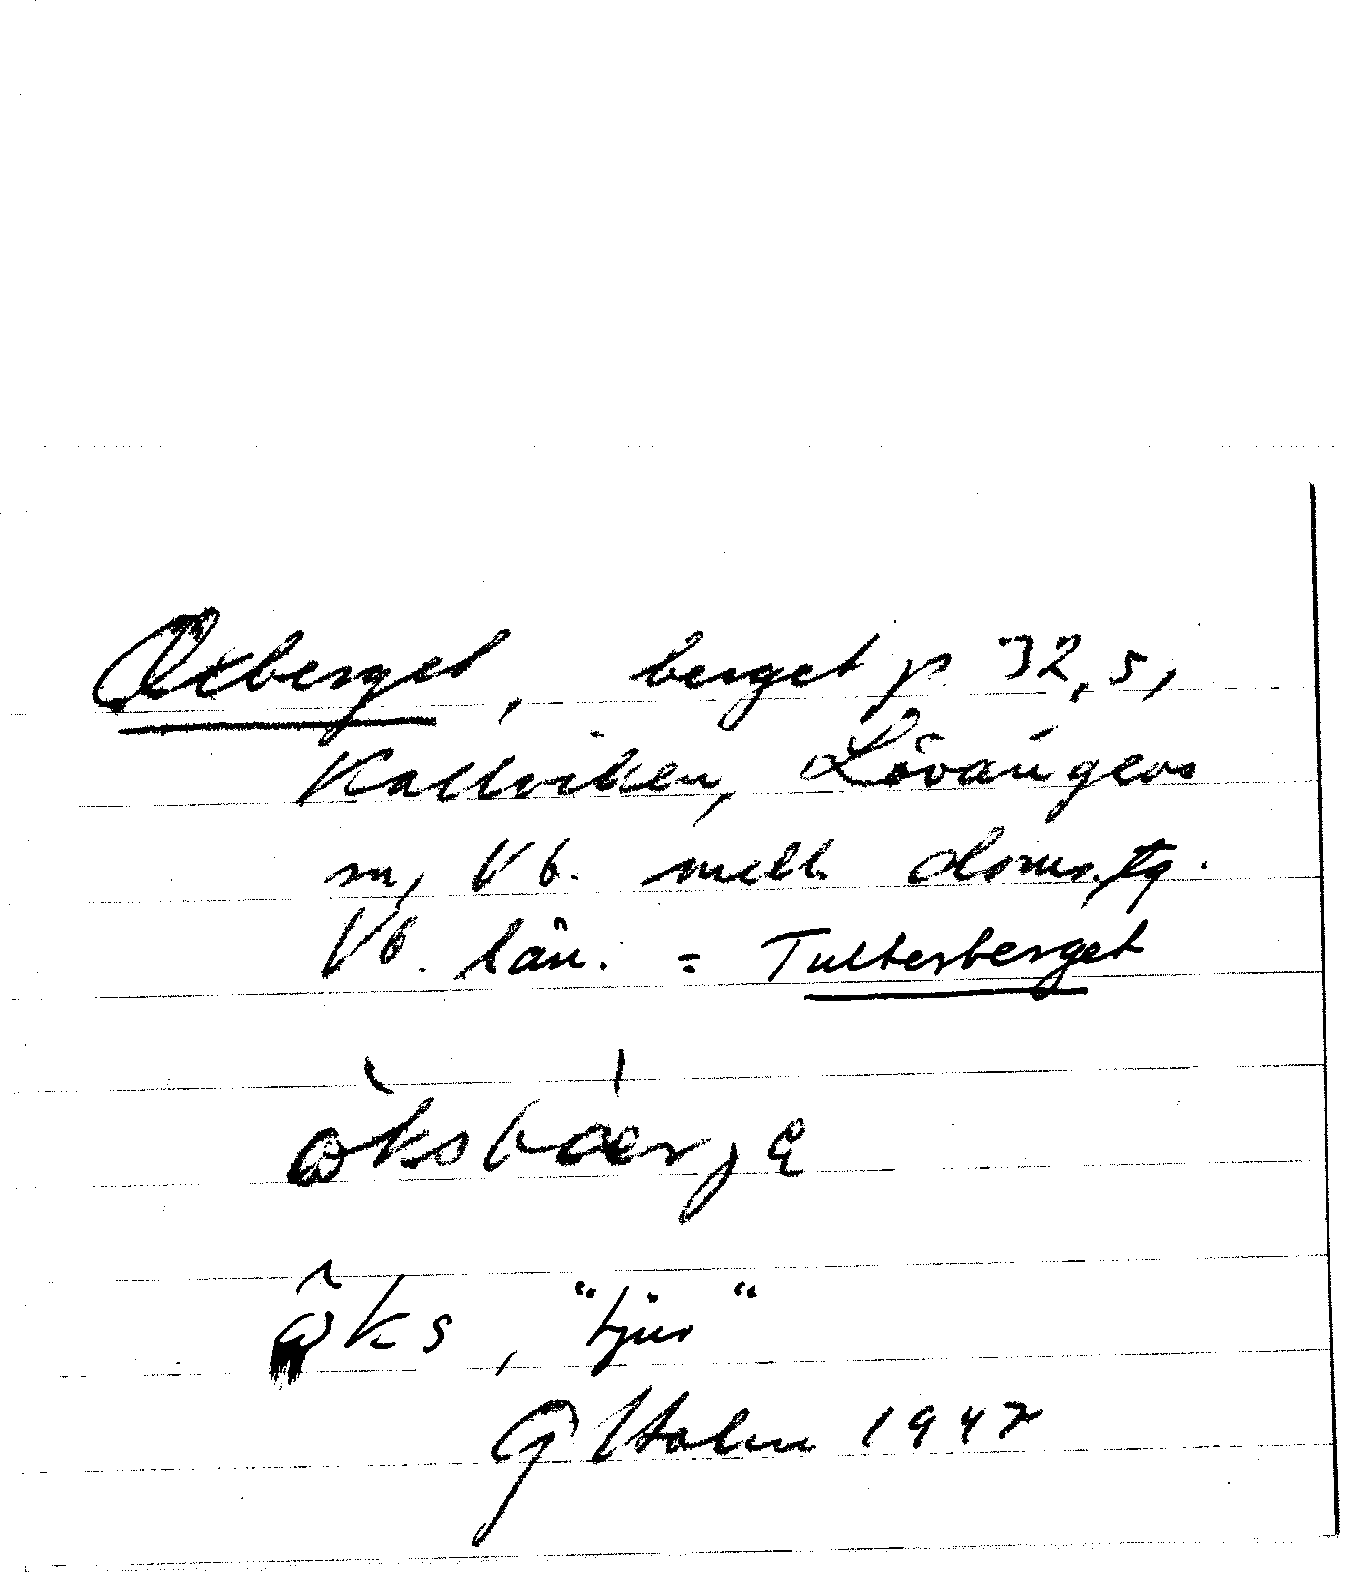 Oxberget, berget p 32,5,
Kallviken, Lövångers
sn, Vb. mell. doms.tg.
Vb. län. = Tulterberget
òksbáerje
òks, "tjur"
G Holm 1947